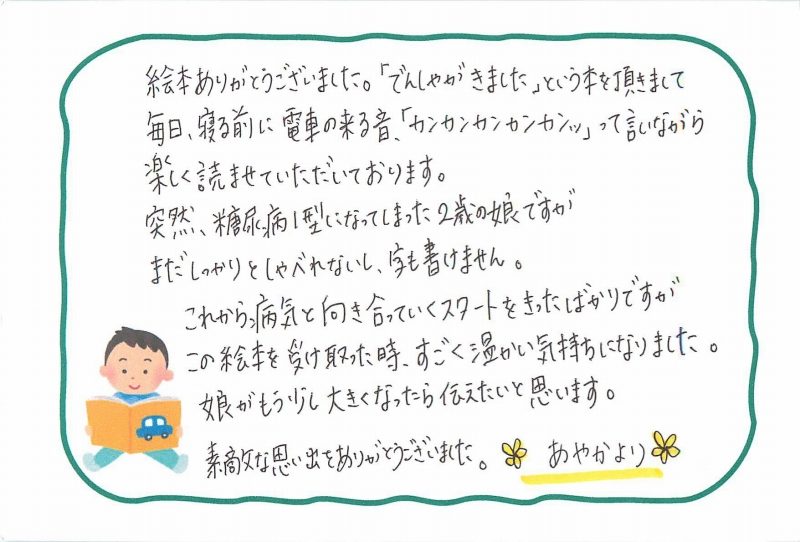 絵本ありがとうございました。「でんしゃがきました」という本を頂きまして
毎日、寝る前に電車の来る音、「カンカンカンカンカンッ」って言いながら
楽しく読ませていただいております。
突然、糖尿病1型になってしまった2歳の娘ですが
まだしっかりとしゃべれないし、字も書けません。
これから病気と向き合っていくスタートをきったばかりですが
この絵本を受け取った時、すごく温かい気持ちになりました。
娘がもう少し大きくなったら伝えたいと思います。
素敵な思い出をありがとうございました。 あやかより